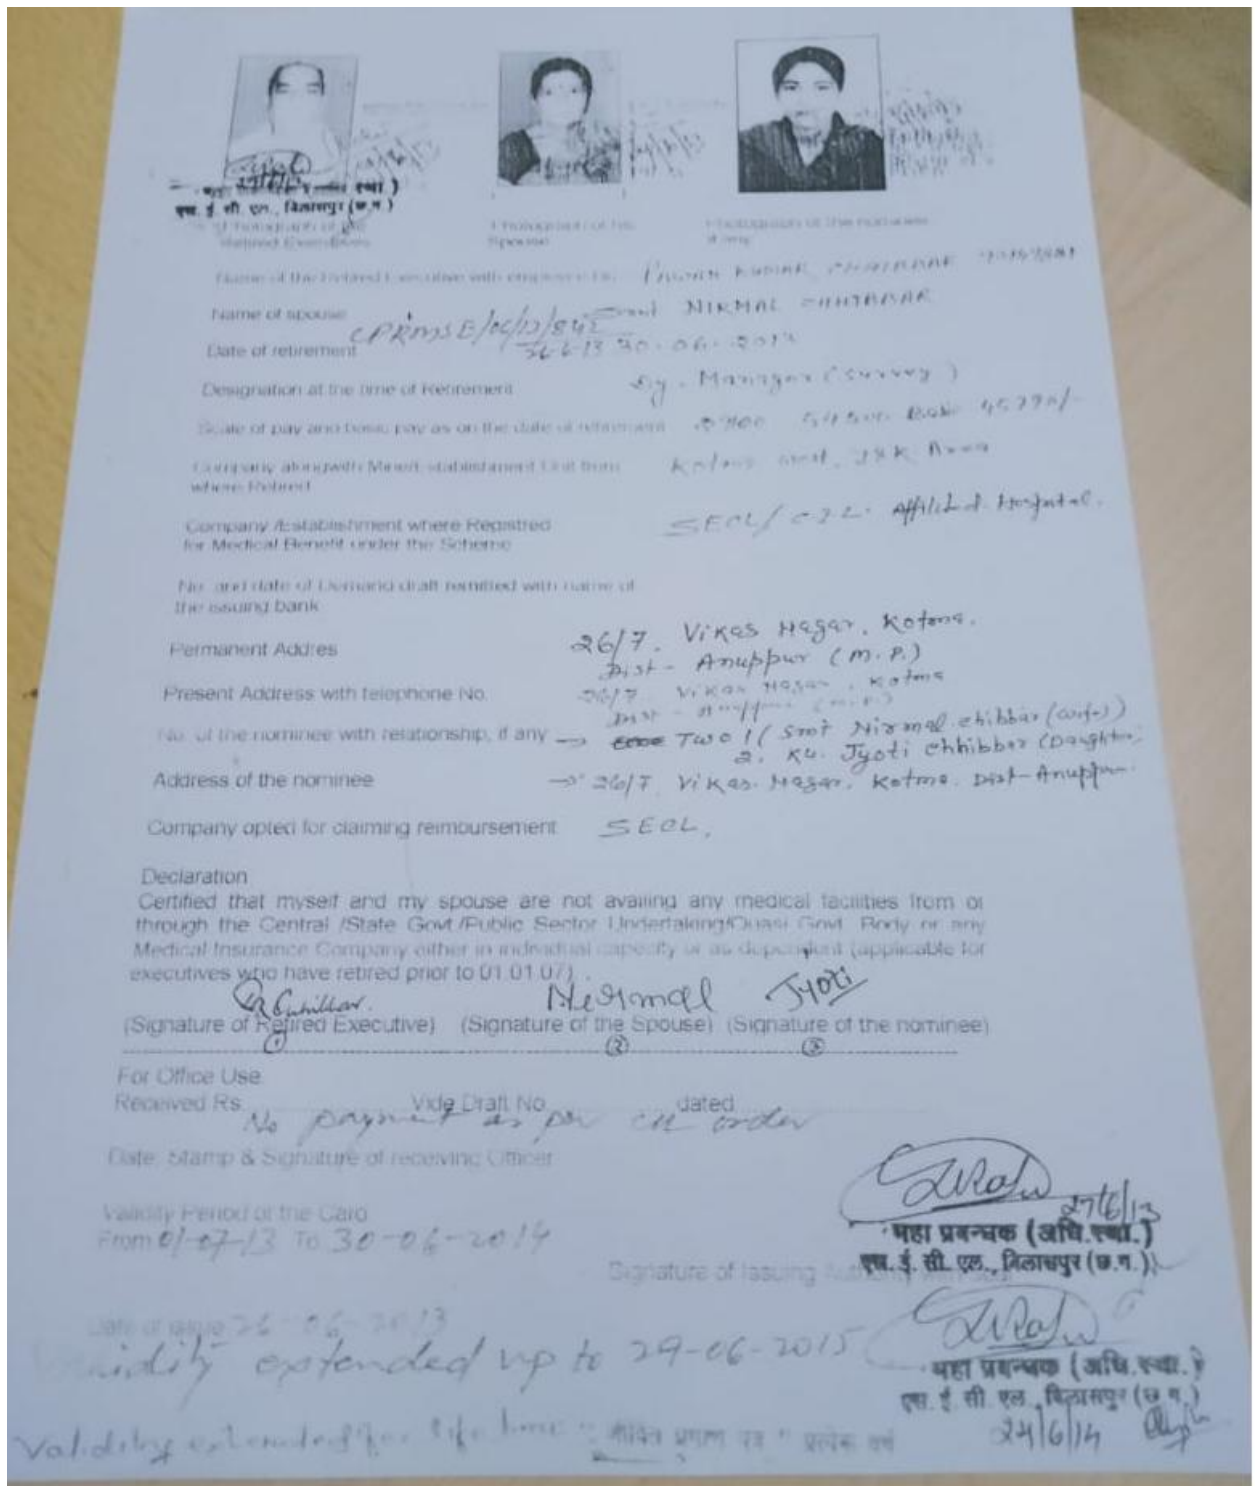 स्था )
एस. ई. सी. एल., बिलासपुर (छ.ग.)
Photograph of the
Retired Executives
Photograph of his
Spouse
Photograph of the nominee
if any
Name of the Retired Executive with
KUMAR
Name of spouse
Smt NIRMAL CHHIBBAR
CPRMSE/06/13/842
Date of retirement
30-06-2013
Designation at the time of Retirement
Dy. Manager (Survey)
Scale of pay and basic pay as on the date of retirement
54500 Basic 45790/-
Company alongwith Mine/Establishment Unit from
where Retired
Kotma J&K Area
Company /Establishment where Registred
for Medical Benefit under the Scheme
SECL/ C.I.L. Affilited. Hospital.
No. and date of Demand draft remitted with name of
the issuing bank
Permanent Addres
26/7. Vikas Nagar, Kotma.
Dist- Anuppur (M.P.)
Present Address with telephone No.
26/7 Vikas Nagar, Kotma
Dist - Anuppur (M.P.)
No. of the nominee with relationship, if any → TWO 1( Smt Nirmal chibbar (wife)
2. Ku. Jyoti Chhibbar (Daughter)
Address of the nominee → 26/7 Vikas. Nagar, Kotma. Dist-Anuppur.
Company opted for claiming reimbursement SECL,
Declaration
Certified that myself and my spouse are not availing any medical facilities from or
through the Central /State Govt /Public Sector Undertaking/Quasi Govt. Body or any
Medical Insurance Company either in individual capacity or as dependent (applicable for
executives who have retired prior to 01.01.07) .
Nirmal Jyoti
(Signature of Retired Executive) (Signature of the Spouse) (Signature of the nominee)
① ② ③
For Office Use.
Received Rs. Vide Draft No. dated
No payment as per CIL order
Date, Stamp & Signature of receiving Officer
Validity Period of the Card
From 01-07-13 To 30-06-2014
27/6/13
महा प्रबन्धक (अधि.स्था.)
एस. ई. सी. एल., बिलासपुर (छ.ग.)
Signature of Issuing Authority with Seal
Date of issue 26-06-2013
Validity extended up to 29-06-2015
महा प्रबन्धक (अधि.स्था.)
एस. ई. सी. एल., बिलासपुर (छ.ग.)
24/6/14
Validity extended for life time " जीवित प्रमाण पत्र " प्रत्येक वर्ष